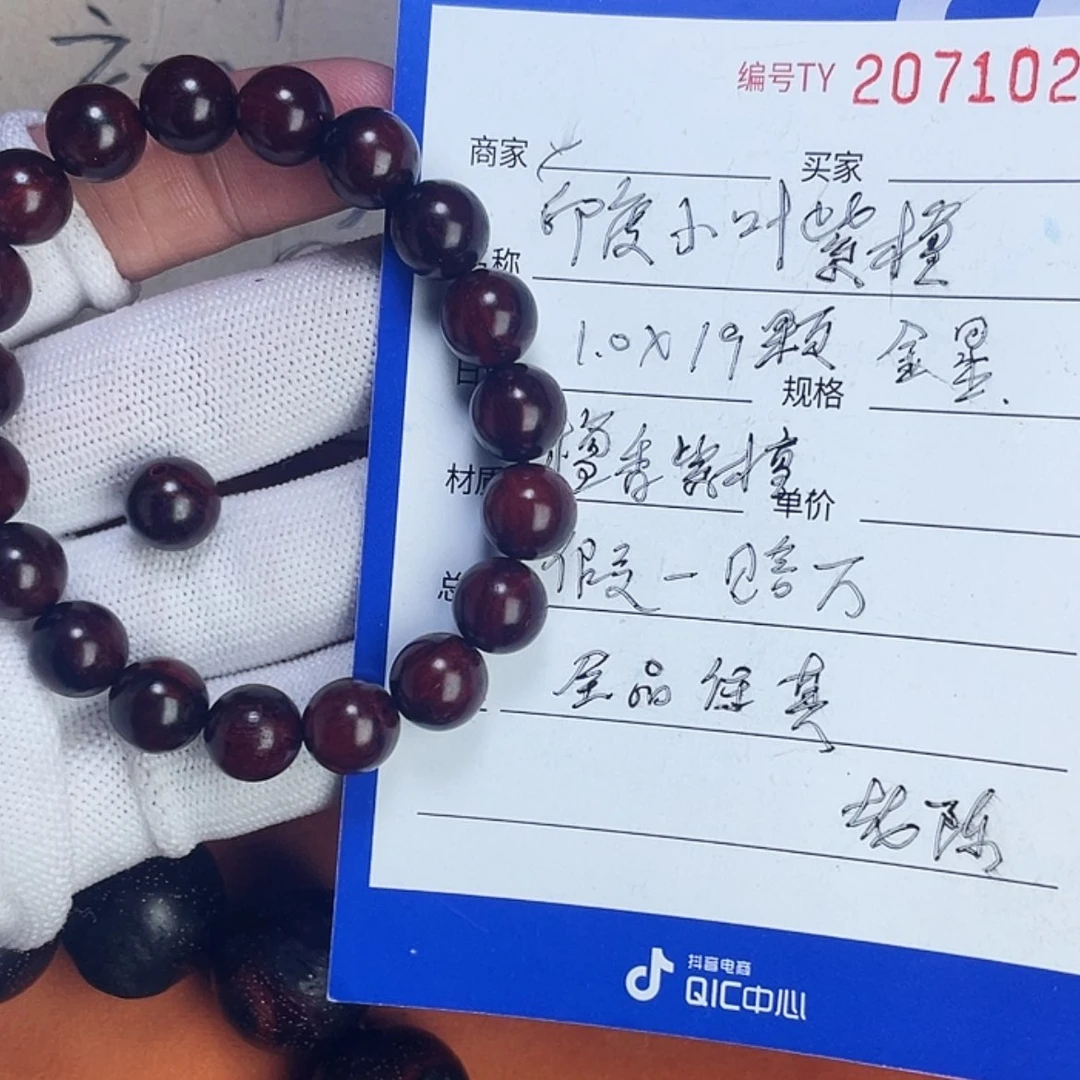 编号TY 207102
商家 买家
印度小叶紫檀
称
1.0X19颗 金星.
规格
檀香紫檀
材质 单价
假一赔万
总
全品保真
老陈
抖音电商
QIC中心